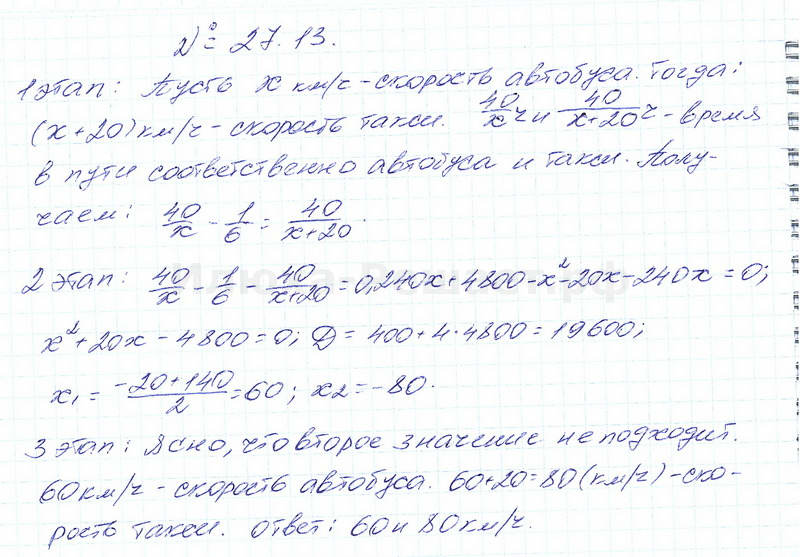 № 27.13.
1 этап: Пусть x км/ч - скорость автобуса. Тогда:
(x+20) км/ч - скорость такси. 40/x ч и 40/(x+20) ч - время
в пути соответственно автобуса и такси. Полу-
чаем: 40/x - 1/6 = 40/(x+20).
2 этап: 40/x - 1/6 - 40/(x+20) = 0, 240x + 4800 - x² - 20x - 240x = 0;
x² + 20x - 4800 = 0; D = 400 + 4·4800 = 19600;
x₁ = (-20+140)/2 = 60; x₂ = -80.
3 этап: Ясно, что второе значение не подходит.
60 км/ч - скорость автобуса. 60+20=80 (км/ч) - ско-
рость такси. Ответ: 60 и 80 км/ч.